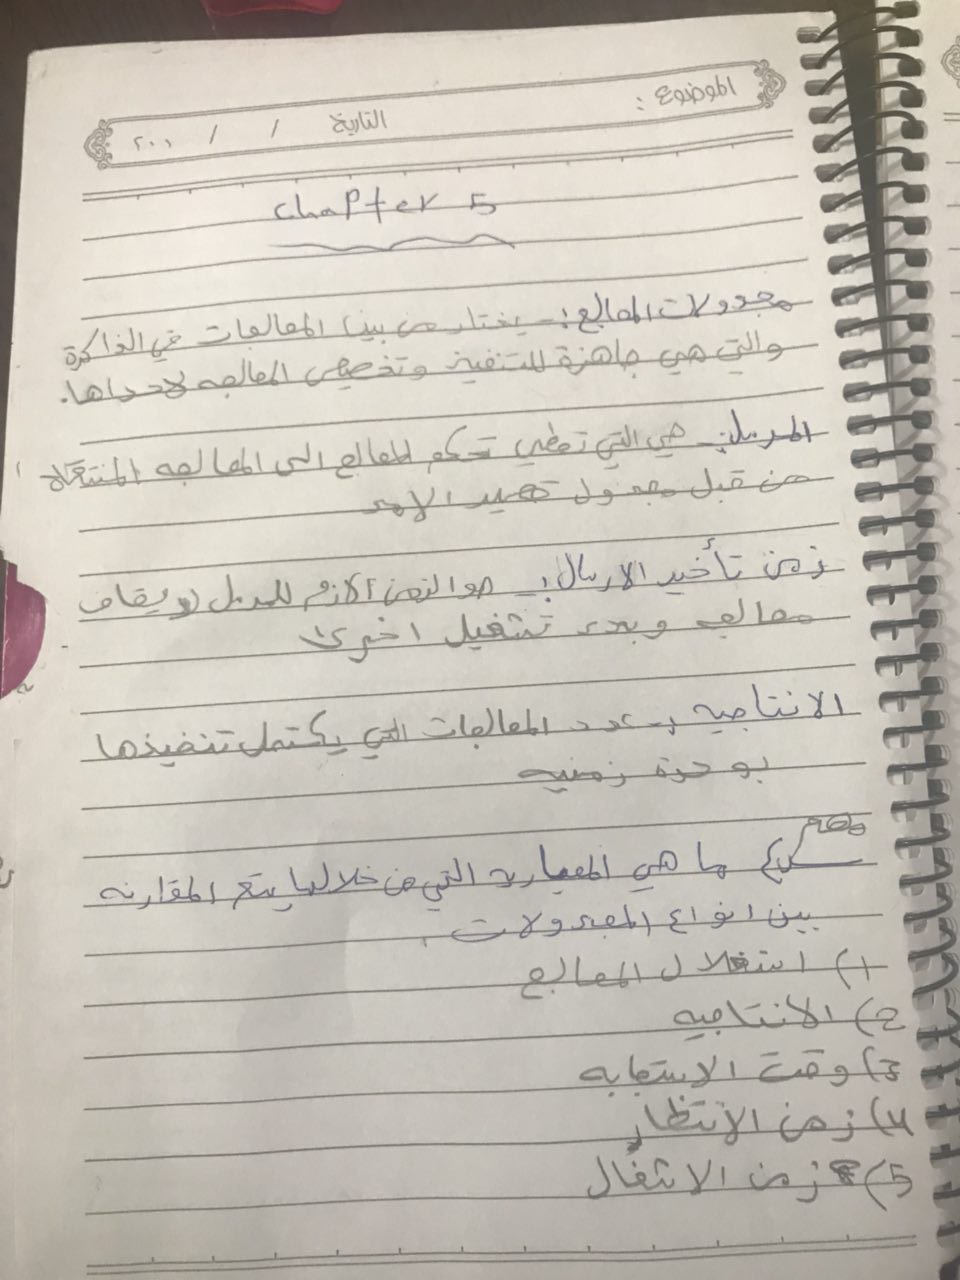 الموضوع :
التاريخ / / ٢٠٠
chapter 5
مجدولات المعالج :- يختار من بين المعالجات في الذاكرة
والتي هي جاهزة للتنفيذ وتخصيص المعالجه لاحداها.
المرسل :- هي التي تعطي تحكم للمعالج الى المعالجه المنتقاة
من قبل مجدول قصير الامد
زمن تأخير الارسال :- هو الزمن الازم للمرسل لايقاف
معالجه وبدء تشغيل اخرى
الانتاجيه :- عدد المعالجات التي يكتمل تنفيذها
بوحدة زمنيه
مهم
س / ما هي المعيارية التي من خلالها يتم المقارنه
بين انواع المجدولات
1) استغلال المعالج
2) الانتاجيه
3) وقت الاستجابه
4) زمن الانتظار
5) زمن الاشغال